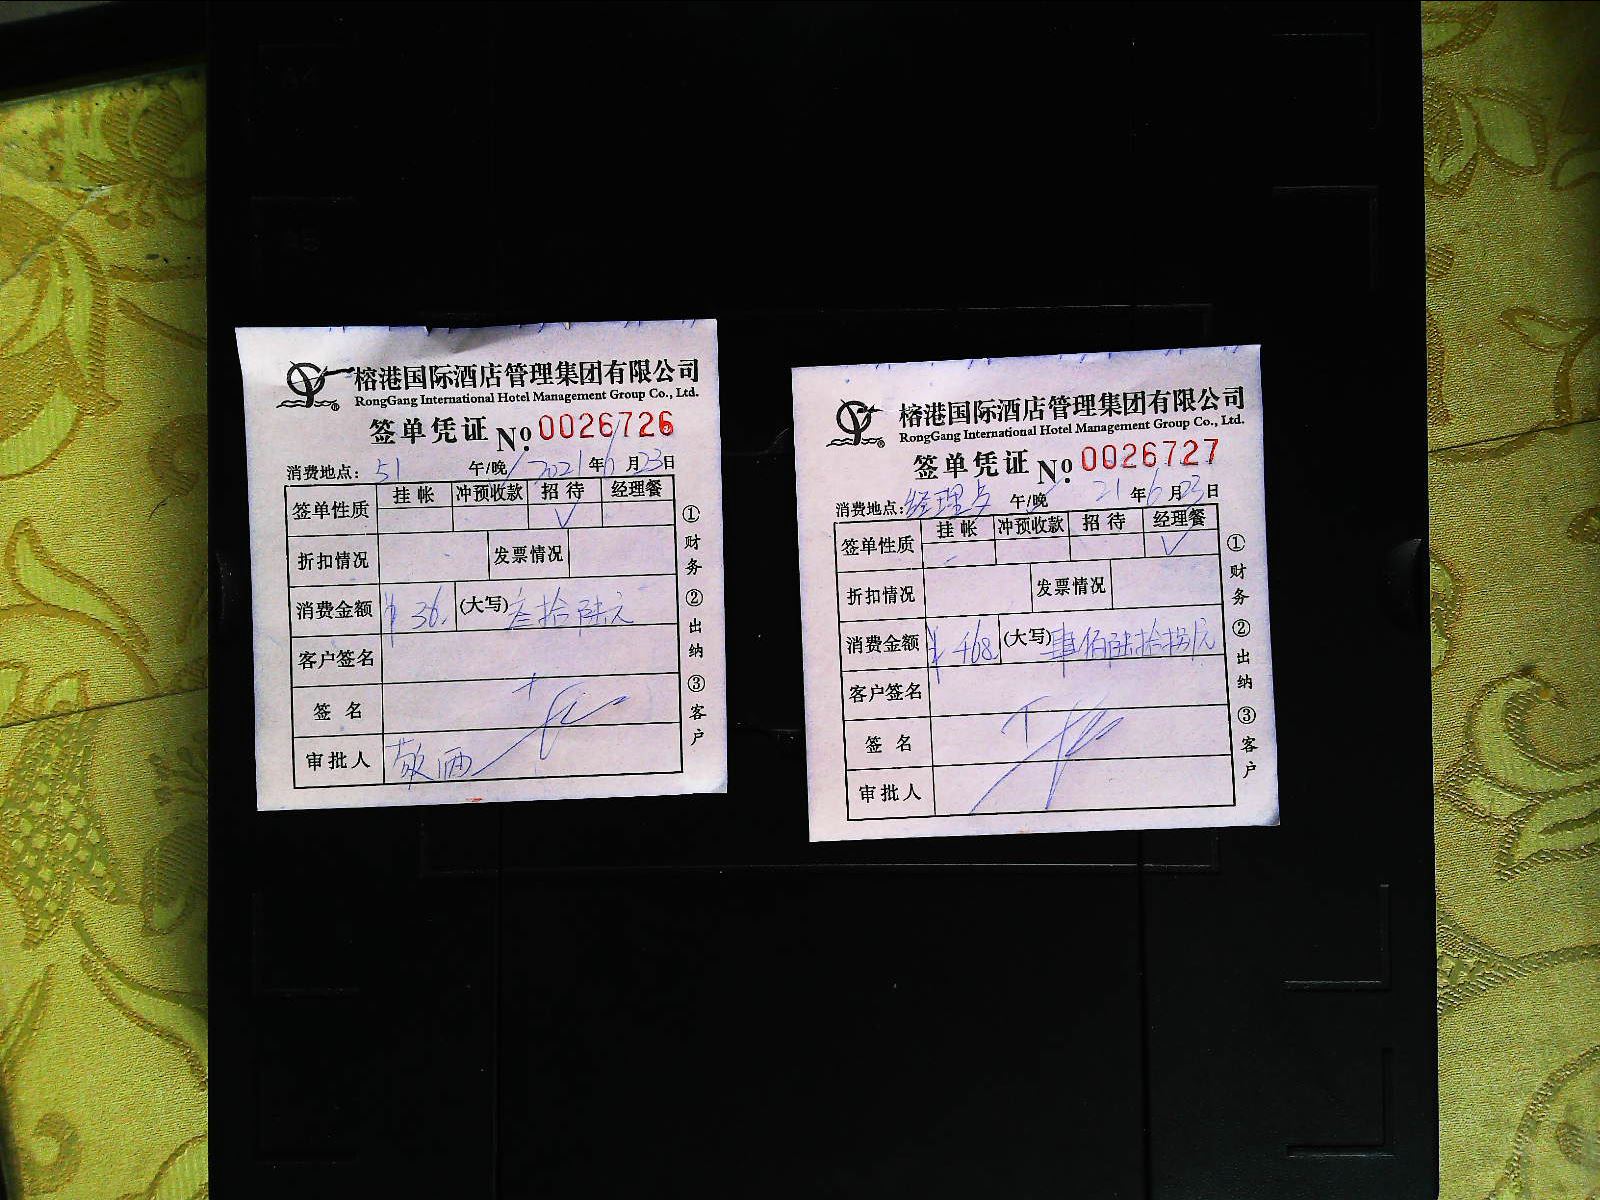 榕港国际酒店管理集团有限公司
RongGang International Hotel Management Group Co., Ltd.
签单凭证 No. 0026726
消费地点: 51 午/晚 2021年6月23日
签单性质 挂帐 冲预收款 招待 经理餐
√
折扣情况 发票情况
消费金额 ¥36. (大写) 叁拾陆元
客户签名
签名
审批人 敬酒
①财务 ②出纳 ③客户
榕港国际酒店管理集团有限公司
RongGang International Hotel Management Group Co., Ltd.
签单凭证 No. 0026727
消费地点: 经理 午/晚 21年6月23日
签单性质 挂帐 冲预收款 招待 经理餐
√
折扣情况 发票情况
消费金额 ¥468. (大写) 肆佰陆拾捌元
客户签名
签名
审批人
①财务 ②出纳 ③客户